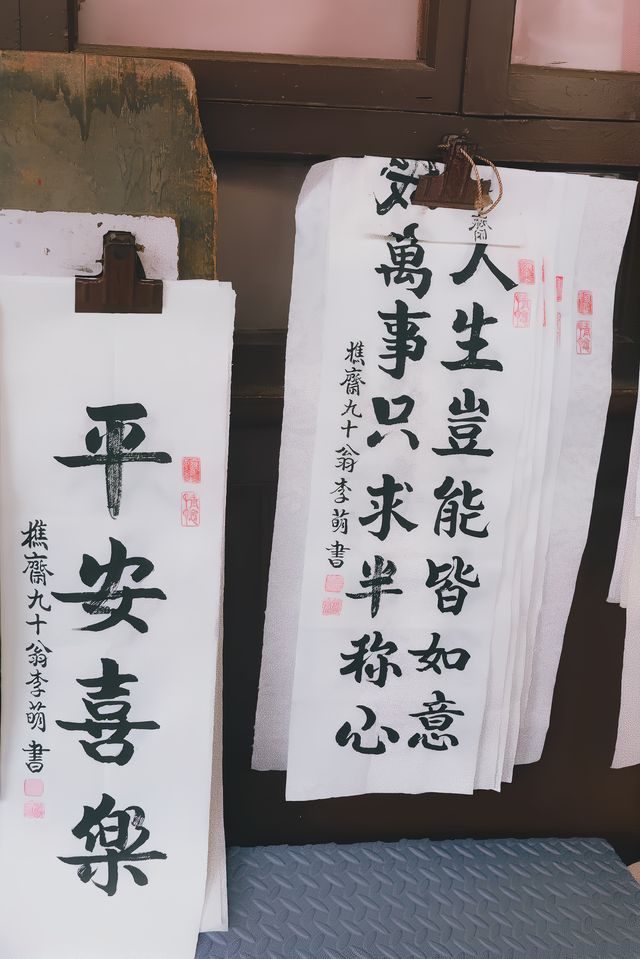 人生豈能皆如意
萬事只求半称心
樵齋九十翁李萌書
平安喜樂
樵齋九十翁李萌書